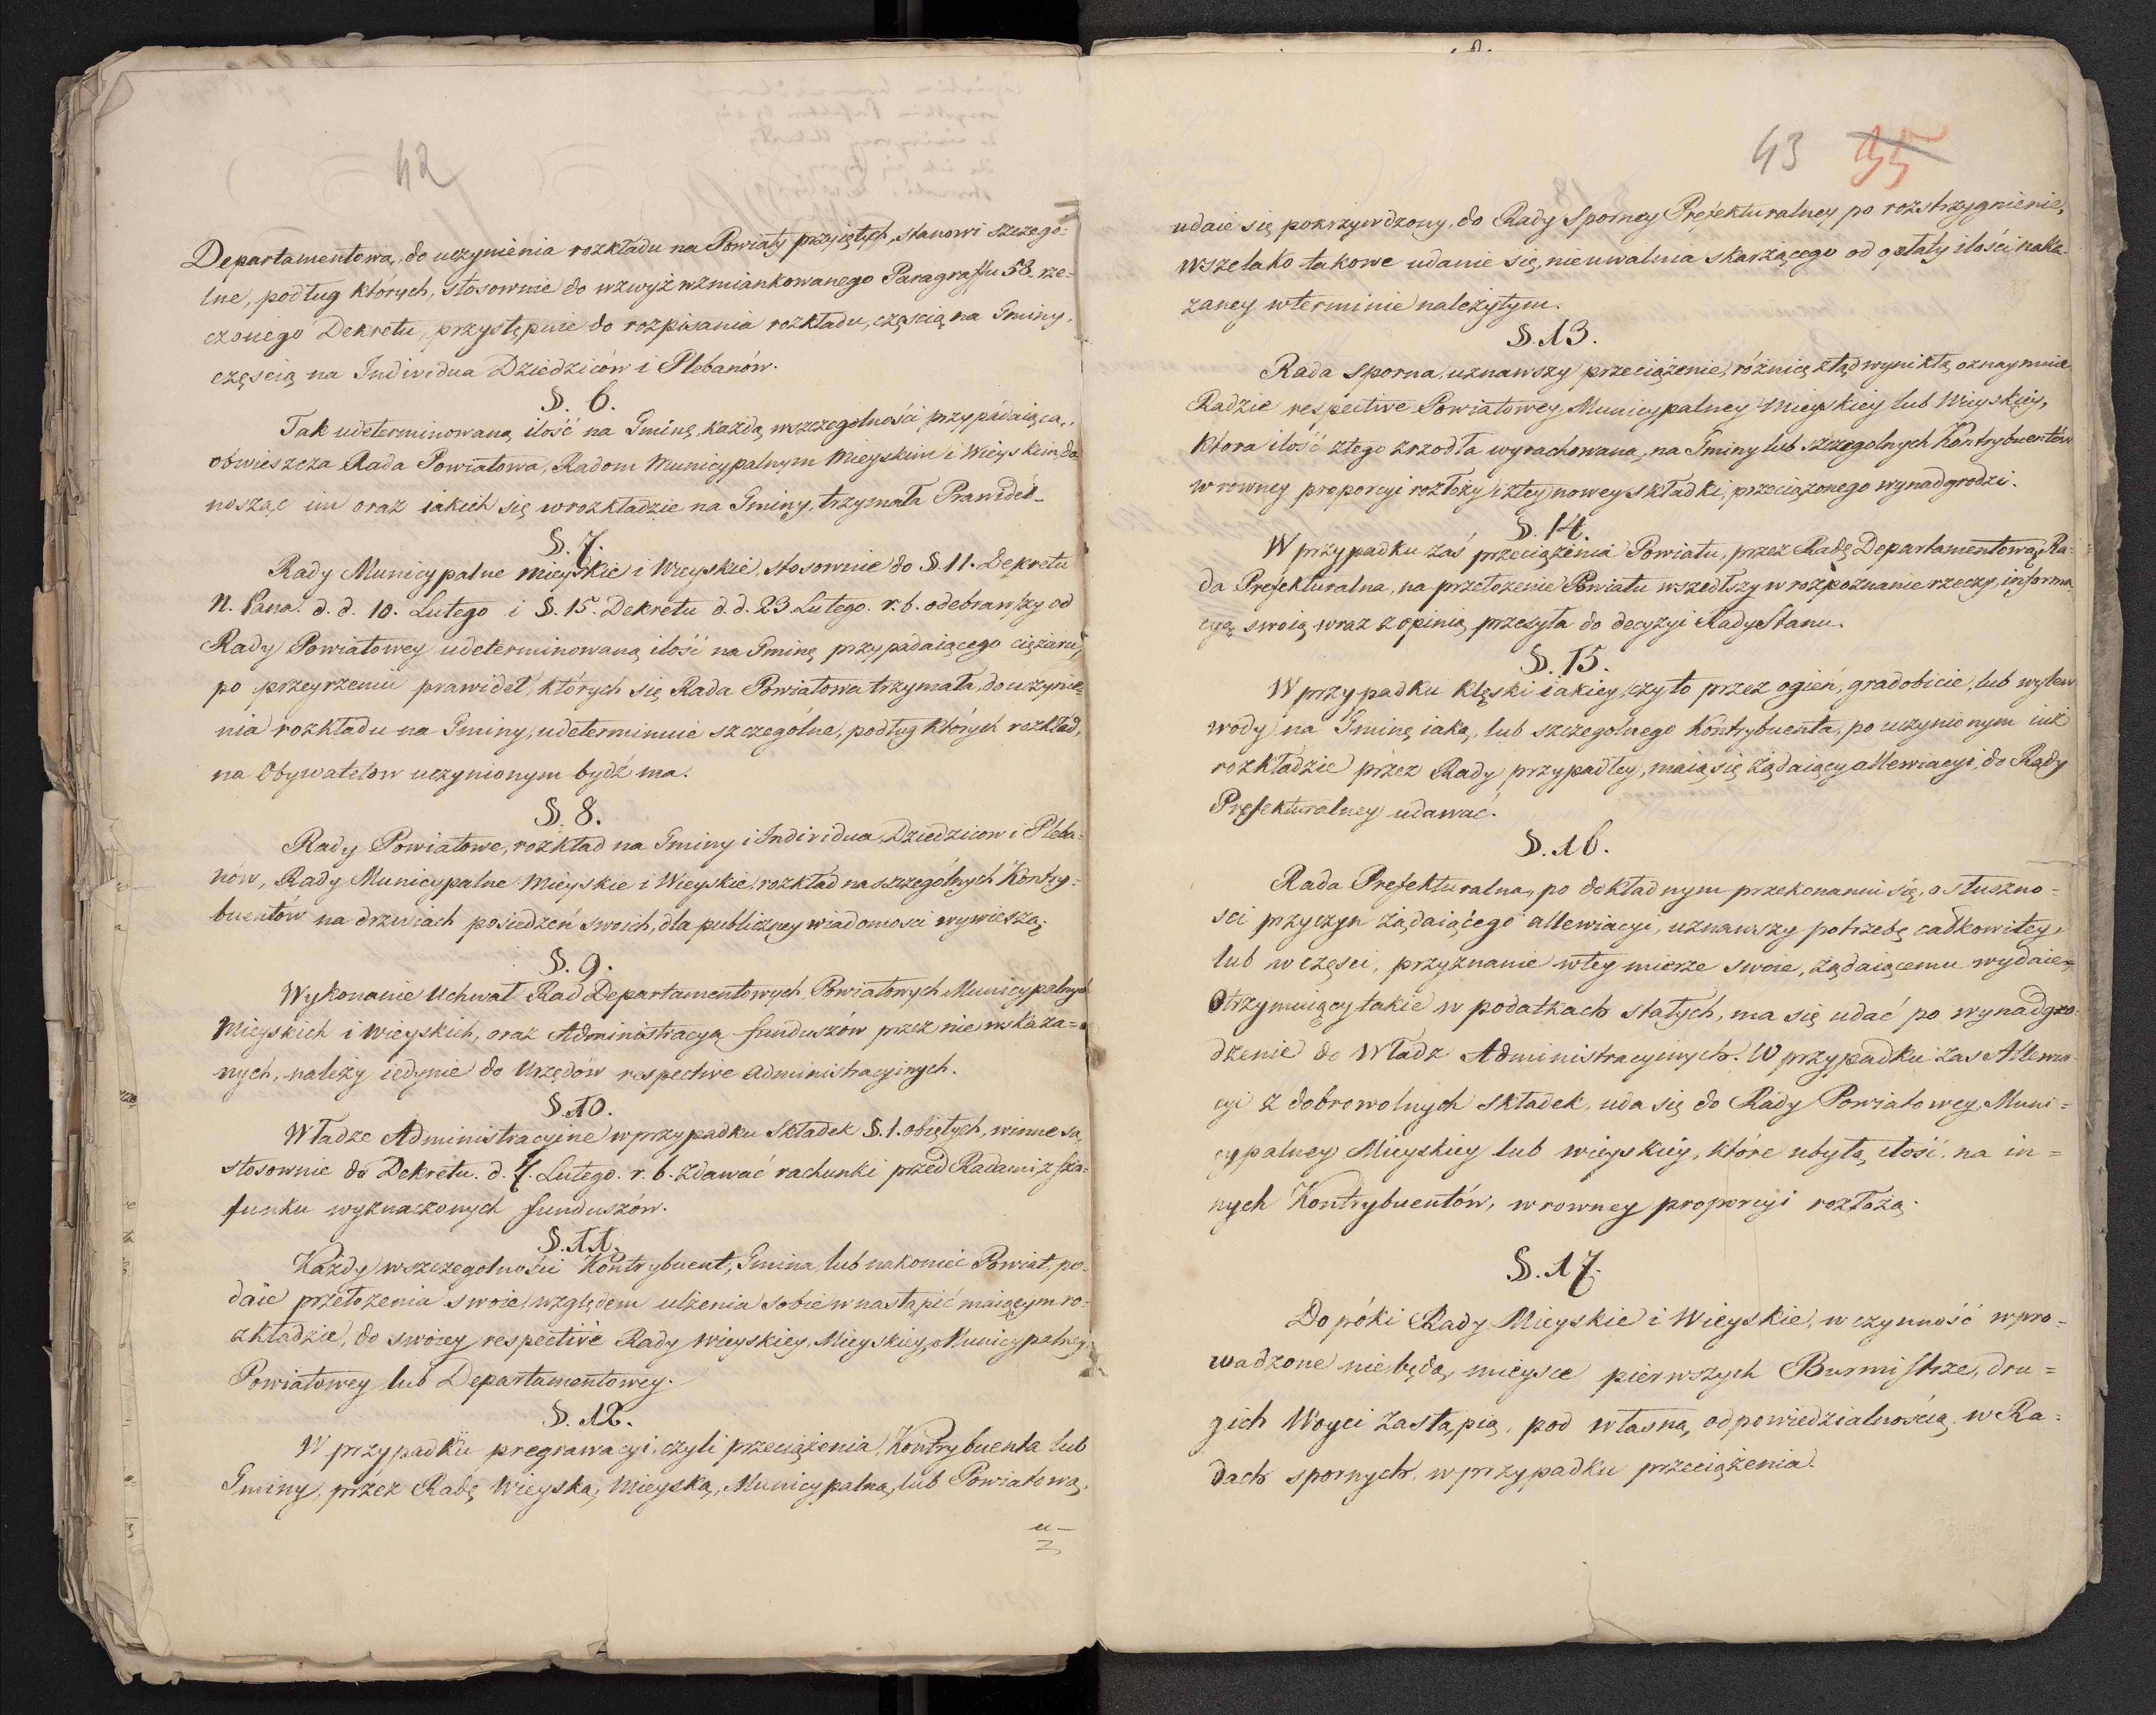 42
Departamentową, do uczynienia rozkładu na Powiaty przyiętych, stanowi szczegó:
lne, podług których, stosownie do wzwyż wzmiankowanego Paragraffu 58. rze-
czonego Dekretu, przystępuie do rozpisania rozkładu, częscią na Gminy,
częscią na Individua Dziedziców i Plebanów.
§. 6.
Tak udeterminowaną ilość na Gminę, każdą wszczegolności przypadaiącą,
obwieszcza Rada Powiatowa, Radom Municypalnym Mieyskim i Wieyskim, do
nosząc im oraz iakich się w rozkładzie na Gminy, trzymała Prawideł.
§. 7.
Rady Municypalne mieyskie i Wieyskie, stosownie do §. 11. Dekretu
N. Pana. d. d. 10. Lutego i §. 15. Dekretu d. d. 23. Lutego. r. b. odebrawszy od
Rady Powiatowey udeterminowaną ilość na Gminę przypadaiącego ciężaru,
po przeyrzeniu prawideł, których się Rada Powiatowa trzymała, do uczynie=
nia rozkładu na Gminy, udeterminuie szczególne, podług których rozkład,
na Obywatelow uczynionym bydź ma.
§. 8.
Rady Powiatowe, rozkład na Gminy i Individua, Dziedzicow i Pleba=
nów, Rady Municypalne Mieyskie i Wieyskie, rozkład na szczególnych Kontry=
buentów na drzwiach posiedzeń swoich, dla publiczney wiadomosci wywieszą.
§. 9.
Wykonanie Uchwał Rad Departamentowych, Powiatowych Municypalnych
Mieyskich i Wieyskich, oraz Administracya funduszów przez nie wskaza=
nych, należy iedynie do Urzędów respective Administracyinych.
§. 10.
Władze Administracyine w przypadku Składek §. 1. obiętych, winne są,
stosownie do Dekretu. d. 7. Lutego. r. b. zdawać rachunki przed Radami z sza=
funku wyznaczonych funduszów.
§. 11.
Każdy wszczegolności Kontrybuent, Gmina, lub nakoniec Powiat, po=
daie przełożenia swoie, względem ulżenia sobie w nastąpić maiącym ro=
zkładzie, do swoiey respective Rady wieyskiey, Mieyskiey, Municypalney
Powiatowey lub Departamentowey.
§. 12.
W przypadku pregrawacyi, czyli przeciążenia Kontrybuenta lub
Gminy, przez Radę Wieyską, Mieyską, Municypalną, lub Powiatową,
u=
43 35
udaie się pokrzywdzony, do Rady Sporney Prefekturalney po rozstrzygnienie,
wszelako takowe udanie się, nie uwalnia skarżącego od opłaty ilości naka=
zaney w terminie należytym.
§. 13.
Rada sporna, uznawszy przeciążenie, różnicę ztąd wynikłą oznaymuie
Radzie respective Powiatowey, Municypalney Mieyskiey lub Wieyskiey,
która ilość ztego zrzodła wyrachowaną, na Gminy lub szczegolnych Kontrybuentów
w rowney proporcyi rozłoży, i ztey nowey składki, przeciążonego wynadgrodzi.
§. 14.
W przypadku zaś przeciążenia Powiatu, przez Radę Departamentową, Ra=
da Prefekturalna, na przełożenie Powiatu wszedłszy w rozpoznanie rzeczy, informa=
cyą swoią wraz z opinią przesyła do decyzyi Rady Stanu.
§. 15.
W przypadku klęski iakiey, czy to przez ogień, gradobicie, lub wylew
wody na Gminę iaką, lub szczegolnego Kontrybuenta, po uczynionym iuż
rozkładzie przez Rady, przypadłey, maią się żądaiący allewiacyi, do Rady
Prefekturalney udawać.
§. 16.
Rada Prefekturalna, po dokładnym przekonaniu się, o słuszno=
sci przyczyn żądaiącego allewiacyi, uznawszy potrzebę całkowitey
lub w części, przyznanie w tey mierze swoie, żądaiącemu wydaie.
Otrzymuiący takie w podatkach stałych, ma się udać po wynadgro=
dzenie do Władz Administracyinych. W przypadku zas Allewia=
cyi z dobrowolnych składek, uda się do Rady Powiatowey, Muni=
cypalney Mieyskiey lub wieyskiey, które ubyłą ilość, na in=
nych Kontrybuentów, w rowney proporcyi rozłożą.
§. 17.
Dopóki Rady Mieyskie i Wieyskie, w czynność wpro=
wadzone nie będą, mieysce pierwszych Burmistrze, dru=
gich Woyci zastąpią, pod własną odpowiedzialnością, w Ra=
dach spornych, w przypadku przeciążenia.